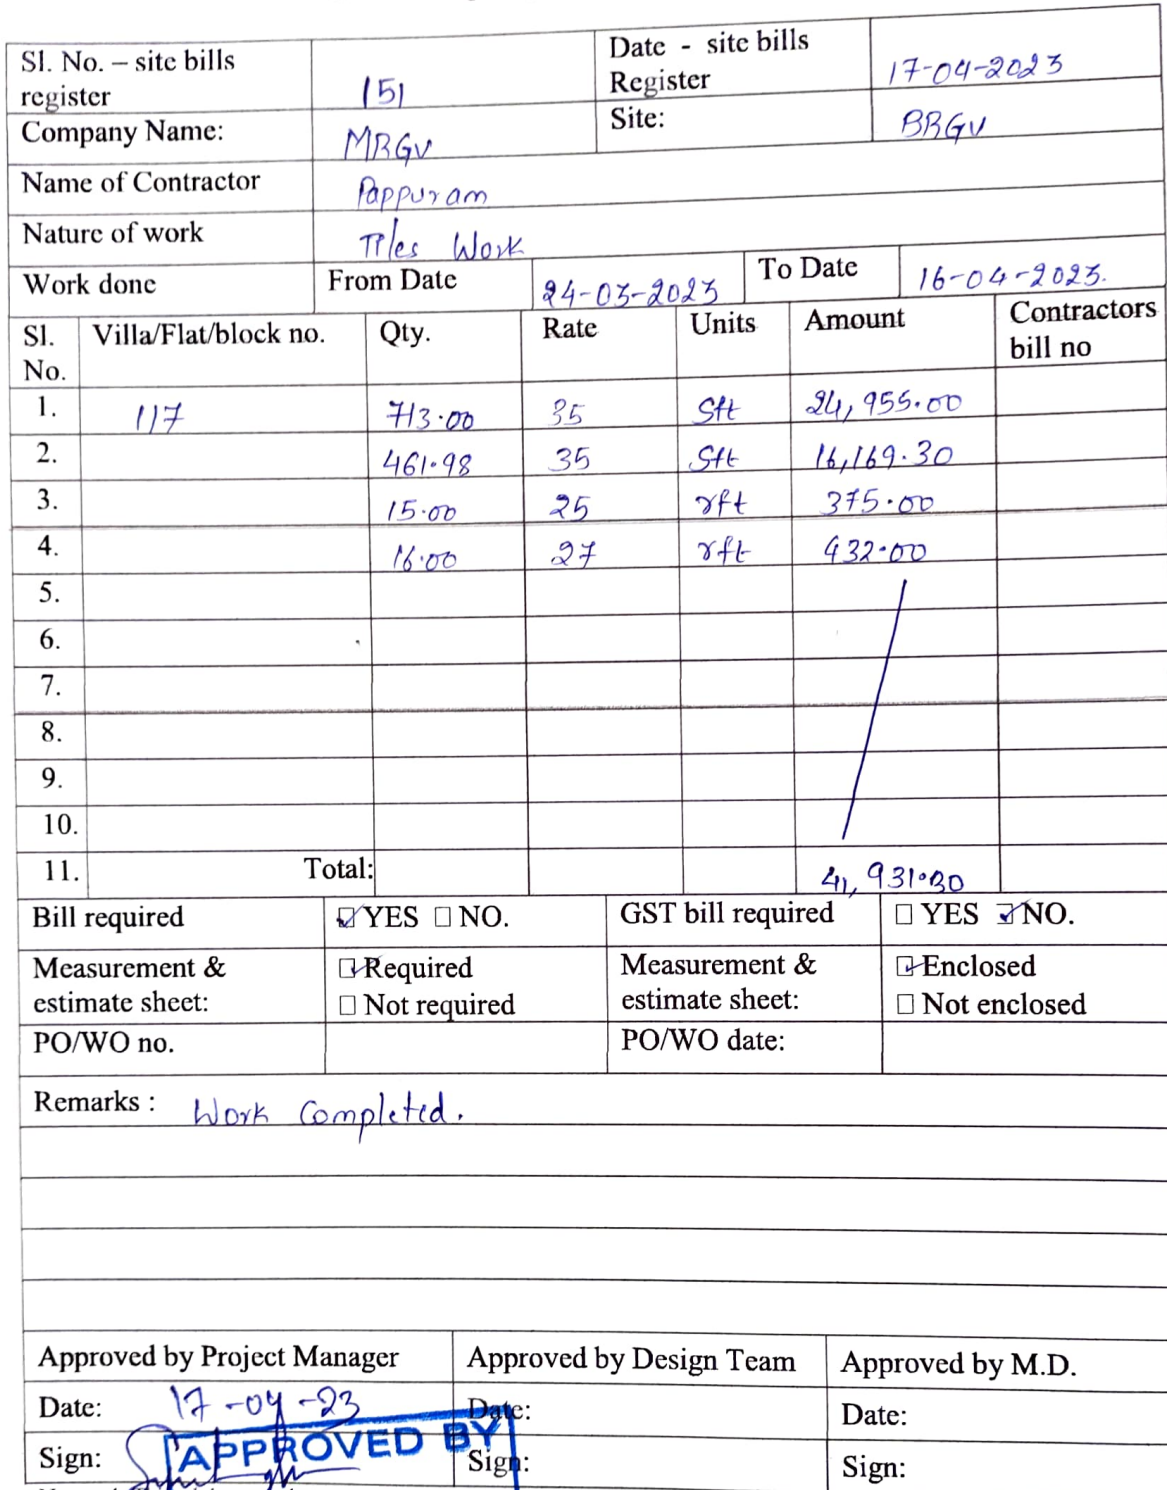 Sl. No. – site bills register 151 Date - site bills Register 17-04-2023
Company Name: MRGV Site: BRGV
Name of Contractor Pappuram
Nature of work Tiles Work
Work done From Date 24-03-2023 To Date 16-04-2023.
Sl. No. Villa/Flat/block no. Qty. Rate Units Amount Contractors bill no
1. 117 713.00 35 Sft 24,955.00
2. 461.98 35 Sft 16,169.30
3. 15.00 25 rft 375.00
4. 16.00 27 rft 432.00
5.
6.
7.
8.
9.
10.
11. Total: 41,931.30
Bill required YES NO. GST bill required YES NO.
Measurement & estimate sheet: Required Not required Measurement & estimate sheet: Enclosed Not enclosed
PO/WO no. PO/WO date:
Remarks : Work Completed.
Approved by Project Manager Approved by Design Team Approved by M.D.
Date: 17-04-23 Date: Date:
Sign: APPROVED BY Sign: Sign: